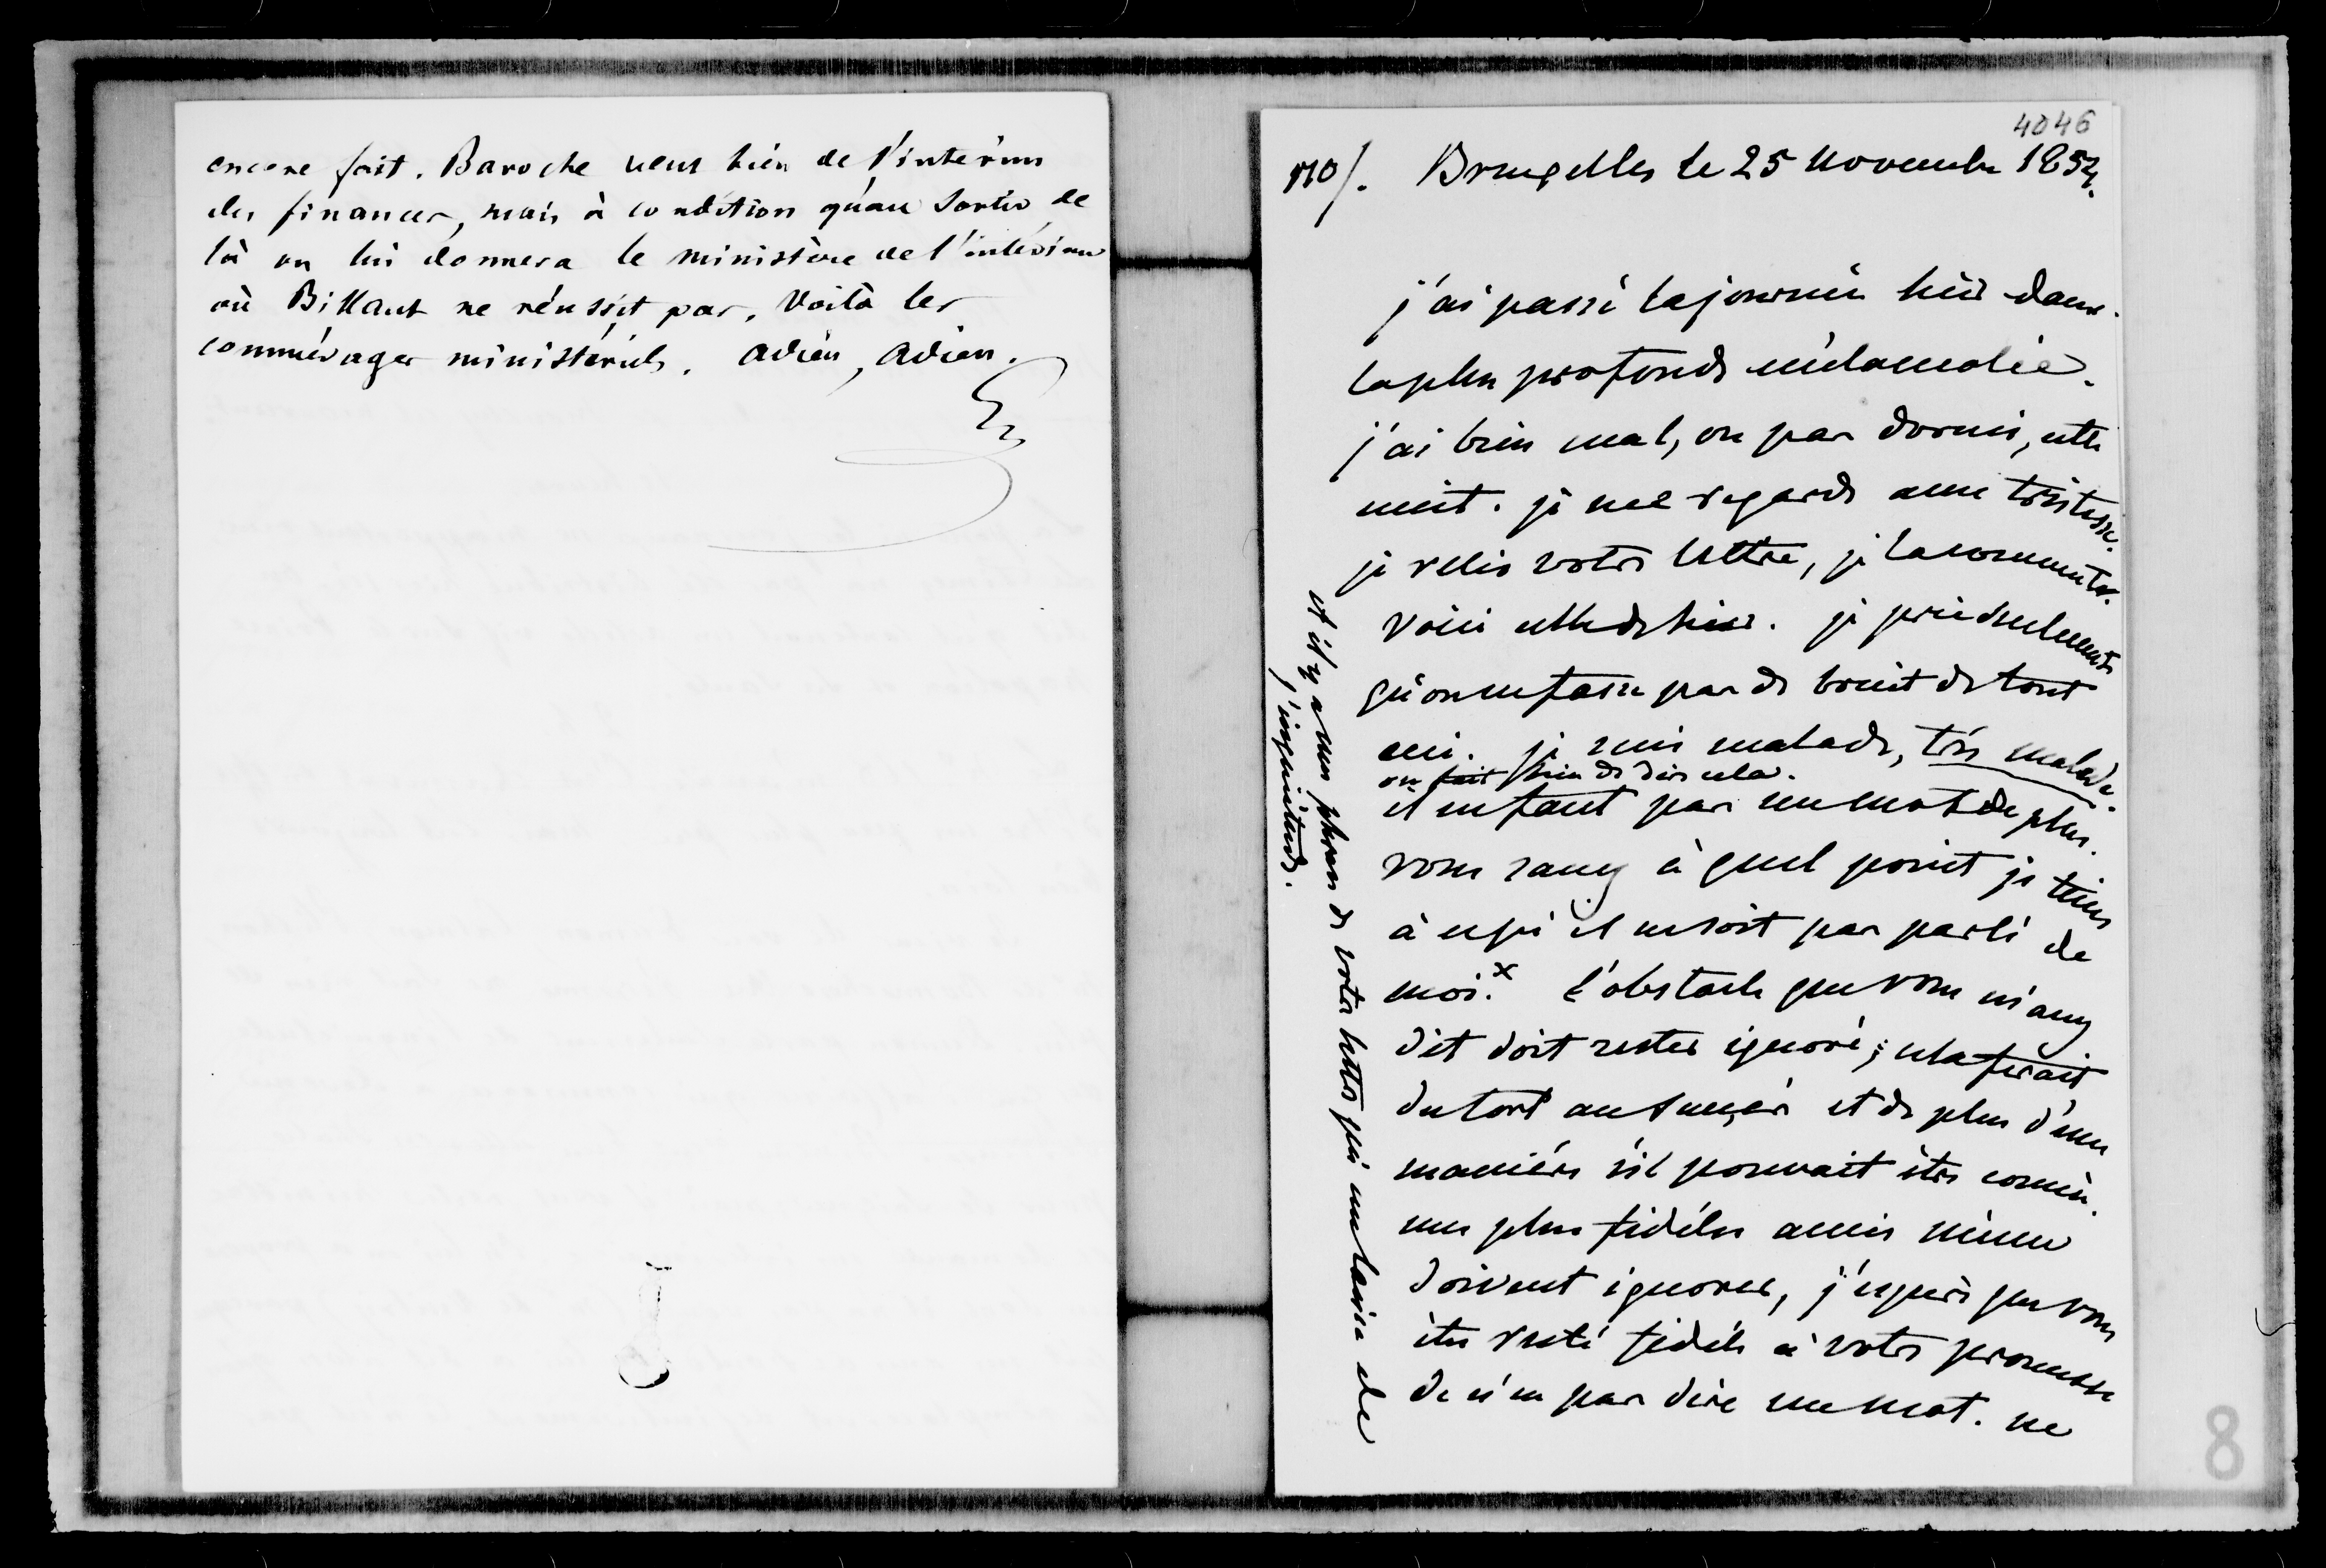 encore fait. Baroche veut bien de l'intérim
des finances, mais à condition qu'au sortir de
là on lui donnera le ministère de l'intérieur
où Billault ne réussit pas. Voilà les
commérages ministériels. Adieu, Adieu.
4046
110/. Bruxelles le 25 novembre 1854.
j'ai passé la journée hier dans
la plus profonde mélancolie.
j'ai bien mal, ou pas dormi, cette
nuit. je me regarde avec tristesse.
je relis votre lettre, je la commente.
voici celle de hier. je prie seulement
qu'on ne fasse pas de bruit de tout
ceci. je suis malade, très malade.
on fait bien de dire cela.
il ne faut pas un mot de plus.
vous savez à quel point je tiens
à ce qu'il ne soit pas parlé de
moi.x l'obstacle que vous m'avez
dit doit rester ignoré; cela ferait
du tort au sujet et de plus d'une
manière s'il pouvait être connu.
mes plus fidèles amis même
doivent ignorer, j'espère que vous
êtes resté fidèle à votre promesse
de n'en pas dire un mot. ne
et il y a une phrase de votre lettre qui me laisse de
l'inquiétude.
8